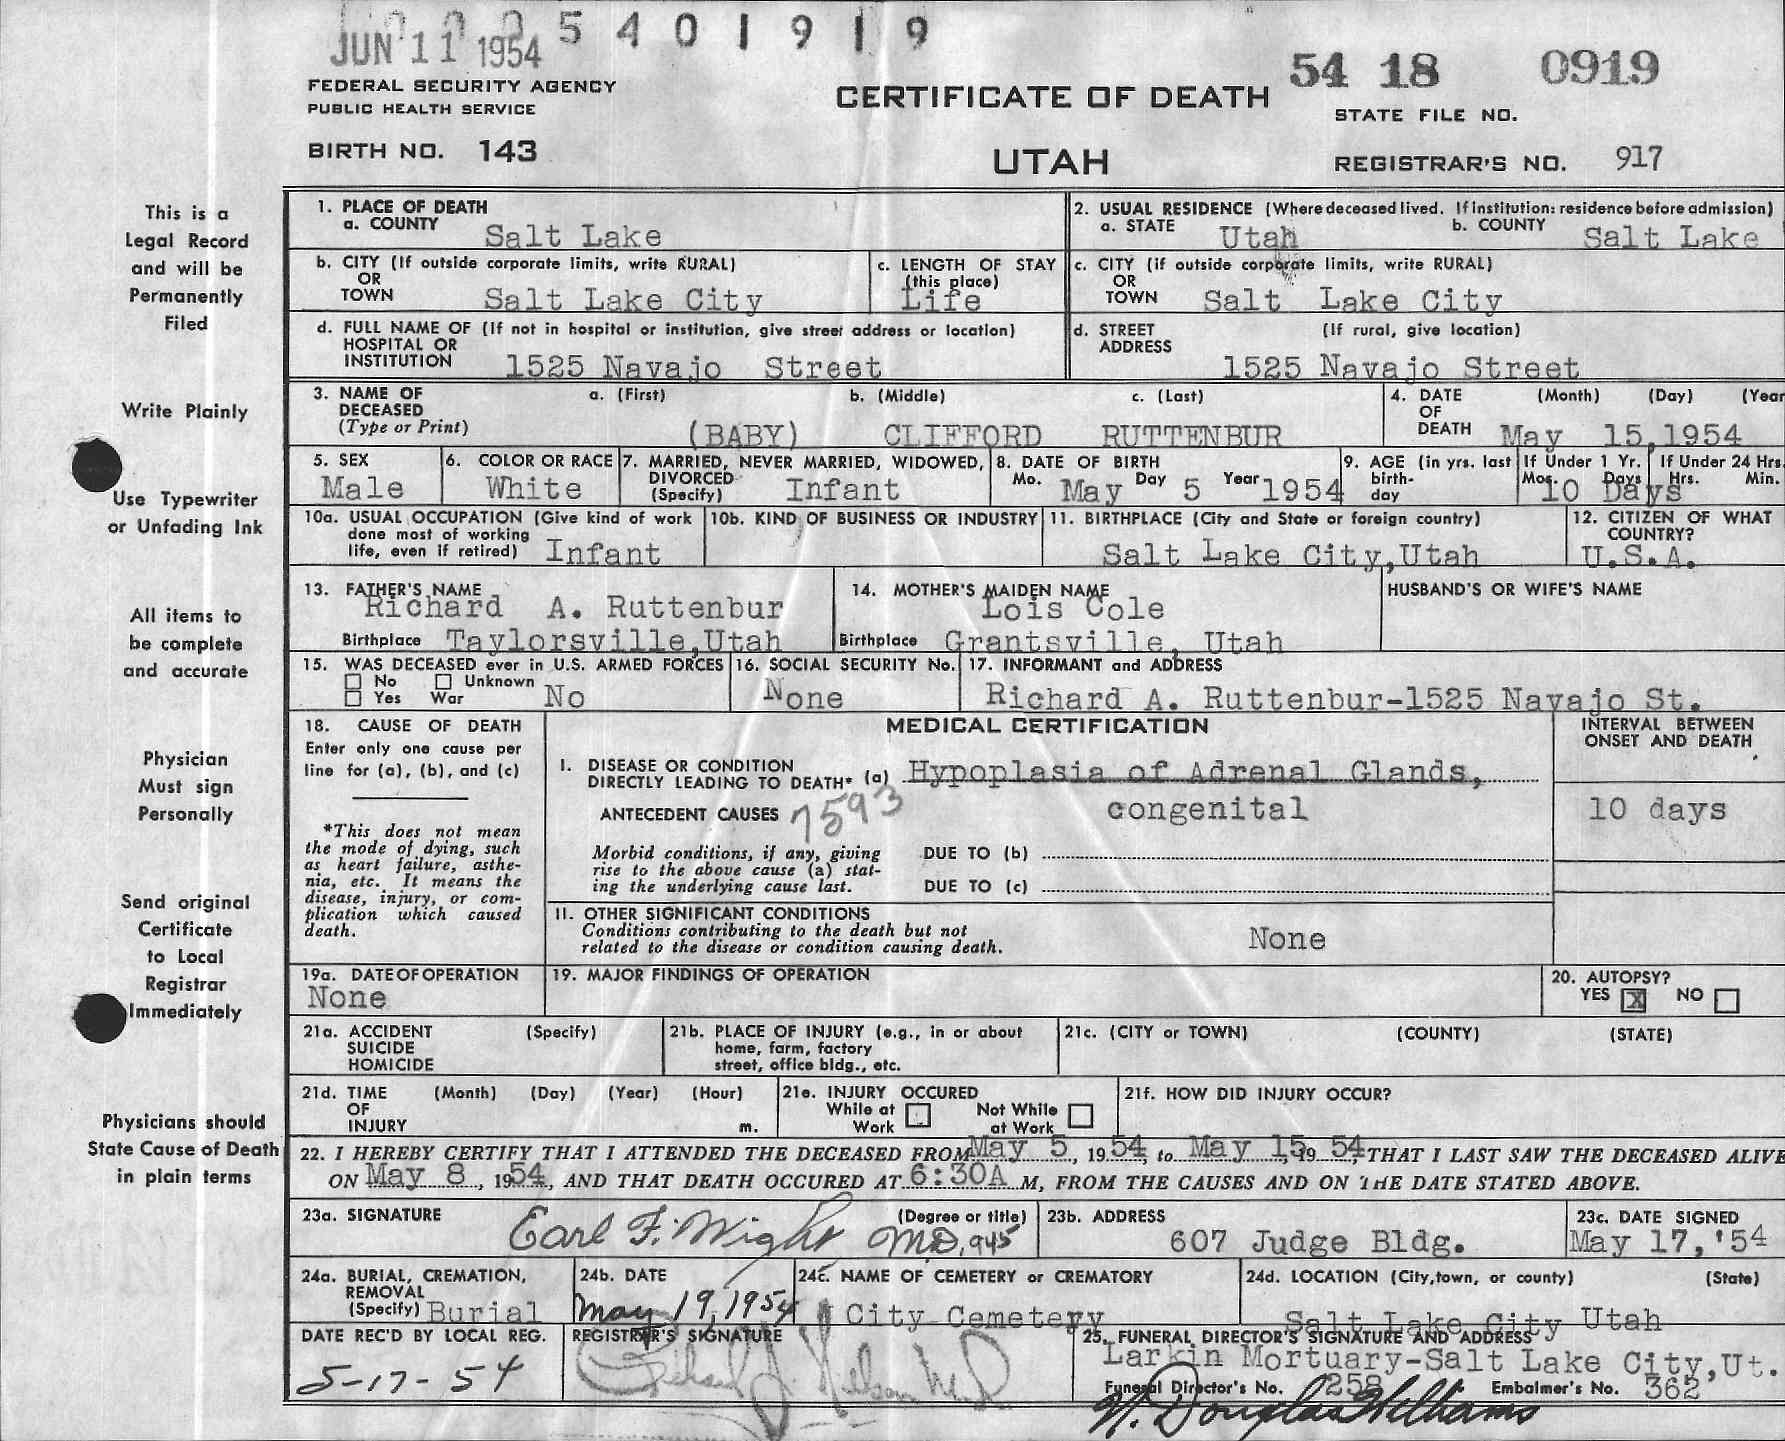 5 4 0 1 9 1 9
JUN 11 1954
54 18 0919
FEDERAL SECURITY AGENCY
PUBLIC HEALTH SERVICE
CERTIFICATE OF DEATH
STATE FILE NO.
BIRTH NO. 143
UTAH
REGISTRAR'S NO. 917
This is a
Legal Record
and will be
Permanently
Filed
Write Plainly
Use Typewriter
or Unfading Ink
All items to
be complete
and accurate
Physician
Must sign
Personally
Send original
Certificate
to Local
Registrar
Immediately
Physicians should
State Cause of Death
in plain terms
1. PLACE OF DEATH
a. COUNTY Salt Lake
2. USUAL RESIDENCE (Where deceased lived. If institution: residence before admission)
a. STATE Utah b. COUNTY Salt Lake
b. CITY (If outside corporate limits, write RURAL)
OR
TOWN Salt Lake City
c. LENGTH OF STAY
(this place)
Life
c. CITY (if outside corporate limits, write RURAL)
OR
TOWN Salt Lake City
d. FULL NAME OF (If not in hospital or institution, give street address or location)
HOSPITAL OR
INSTITUTION 1525 Navajo Street
d. STREET (If rural, give location)
ADDRESS
1525 Navajo Street
3. NAME OF a. (First) b. (Middle) c. (Last)
DECEASED
(Type or Print) (BABY) CLIFFORD RUTTENBUR
4. DATE (Month) (Day) (Year
OF
DEATH May 15,1954
5. SEX
Male
6. COLOR OR RACE
White
7. MARRIED, NEVER MARRIED, WIDOWED,
DIVORCED
(Specify) Infant
8. DATE OF BIRTH
Mo. May Day 5 Year 1954
9. AGE (in yrs. last
birth-
day
If Under 1 Yr.
Mos. Days
10 Days
If Under 24 Hrs.
Hrs. Min.
10a. USUAL OCCUPATION (Give kind of work
done most of working
life, even if retired) Infant
10b. KIND OF BUSINESS OR INDUSTRY
11. BIRTHPLACE (City and State or foreign country)
Salt Lake City,Utah
12. CITIZEN OF WHAT
COUNTRY?
U.S.A.
13. FATHER'S NAME
Richard A. Ruttenbur
Birthplace Taylorsville,Utah
14. MOTHER'S MAIDEN NAME
Lois Cole
Birthplace Grantsville, Utah
HUSBAND'S OR WIFE'S NAME
15. WAS DECEASED ever in U.S. ARMED FORCES
No Unknown
Yes War No
16. SOCIAL SECURITY No.
None
17. INFORMANT and ADDRESS
Richard A. Ruttenbur-1525 Navajo St.
18. CAUSE OF DEATH
Enter only one cause per
line for (a), (b), and (c)
*This does not mean
the mode of dying, such
as heart failure, asthe-
nia, etc. It means the
disease, injury, or com-
plication which caused
death.
MEDICAL CERTIFICATION
INTERVAL BETWEEN
ONSET AND DEATH
I. DISEASE OR CONDITION
DIRECTLY LEADING TO DEATH* (a) Hypoplasia of Adrenal Glands,
ANTECEDENT CAUSES 7593 congenital 10 days
Morbid conditions, if any, giving
rise to the above cause (a) stat-
ing the underlying cause last.
DUE TO (b)
DUE TO (c)
II. OTHER SIGNIFICANT CONDITIONS
Conditions contributing to the death but not
related to the disease or condition causing death.
None
19a. DATE OF OPERATION
None
19. MAJOR FINDINGS OF OPERATION
20. AUTOPSY?
YES X NO
21a. ACCIDENT (Specify)
SUICIDE
HOMICIDE
21b. PLACE OF INJURY (e.g., in or about
home, farm, factory
street, office bldg., etc.
21c. (CITY or TOWN) (COUNTY) (STATE)
21d. TIME (Month) (Day) (Year) (Hour)
OF
INJURY m.
21e. INJURY OCCURED
While at Work Not While at Work
21f. HOW DID INJURY OCCUR?
22. I HEREBY CERTIFY THAT I ATTENDED THE DECEASED FROM May 5, 1954, to May 15, 1954, THAT I LAST SAW THE DECEASED ALIVE
ON May 8, 1954, AND THAT DEATH OCCURED AT 6:30A M, FROM THE CAUSES AND ON THE DATE STATED ABOVE.
23a. SIGNATURE (Degree or title)
Earl F. Wight MD, 945
23b. ADDRESS
607 Judge Bldg.
23c. DATE SIGNED
May 17,'54
24a. BURIAL, CREMATION,
REMOVAL
(Specify) Burial
24b. DATE
May 19, 1954
24c. NAME OF CEMETERY or CREMATORY
City Cemetery
24d. LOCATION (City,town, or county) (State)
Salt Lake City Utah
DATE REC'D BY LOCAL REG.
5-17-54
REGISTRAR'S SIGNATURE
25. FUNERAL DIRECTOR'S SIGNATURE AND ADDRESS
Larkin Mortuary-Salt Lake City,Ut.
Funeral Director's No. 258 Embalmer's No. 362
W. Douglas Williams